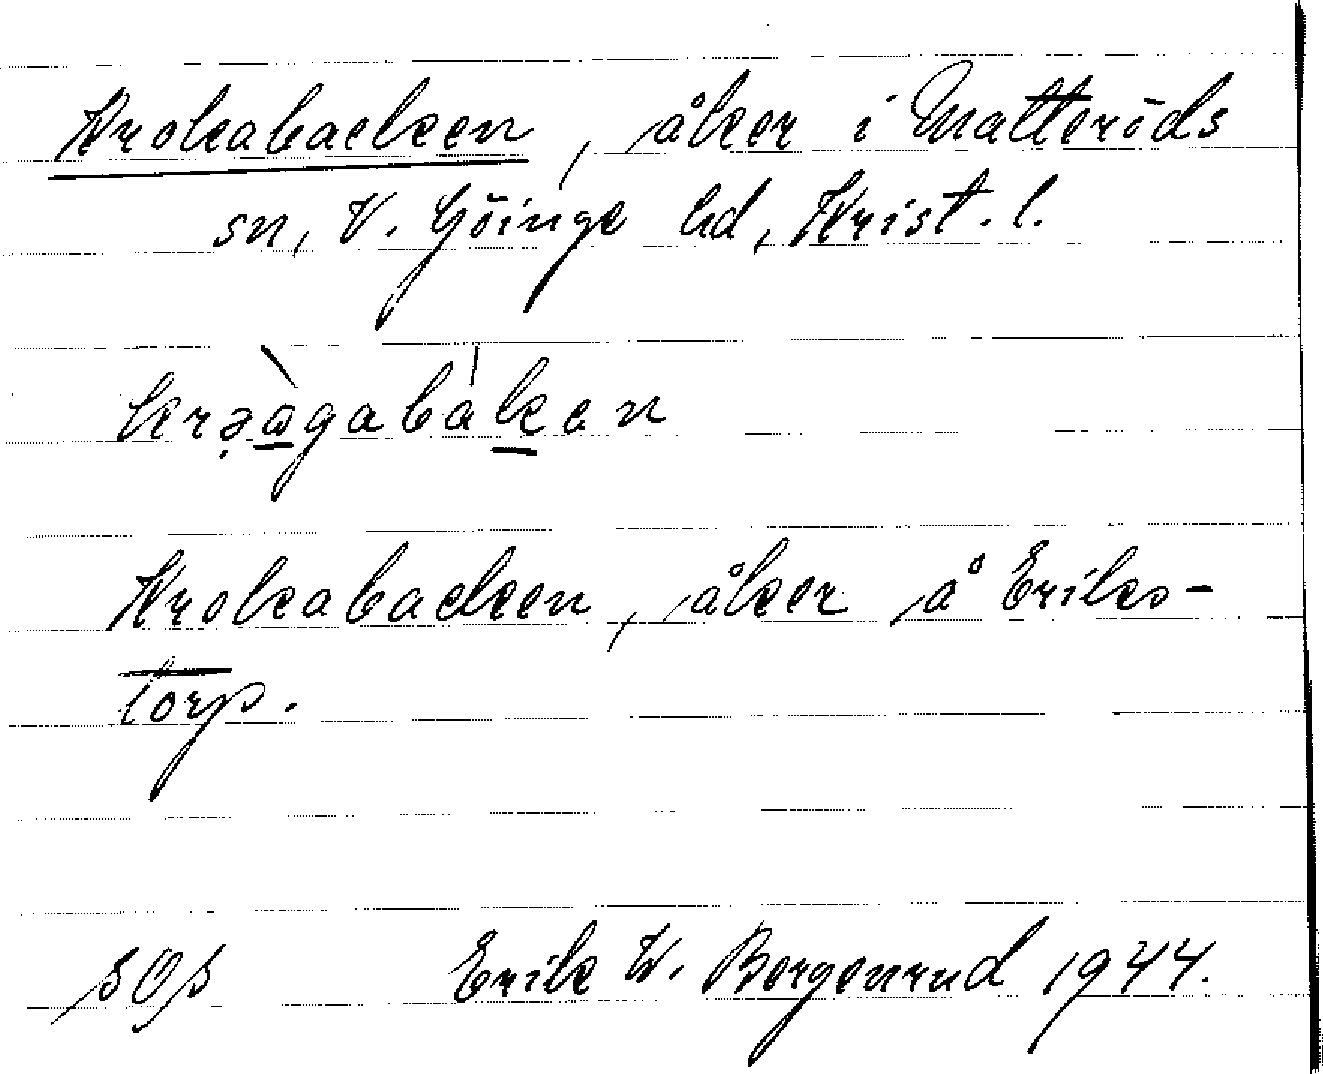 Krokabacken, åker i Matteröds
sn, V. Göinge hd, Krist. l.
Krokabacken, åker å Eriks-
torp.
SOS Erik W. Borgenrud 1944.